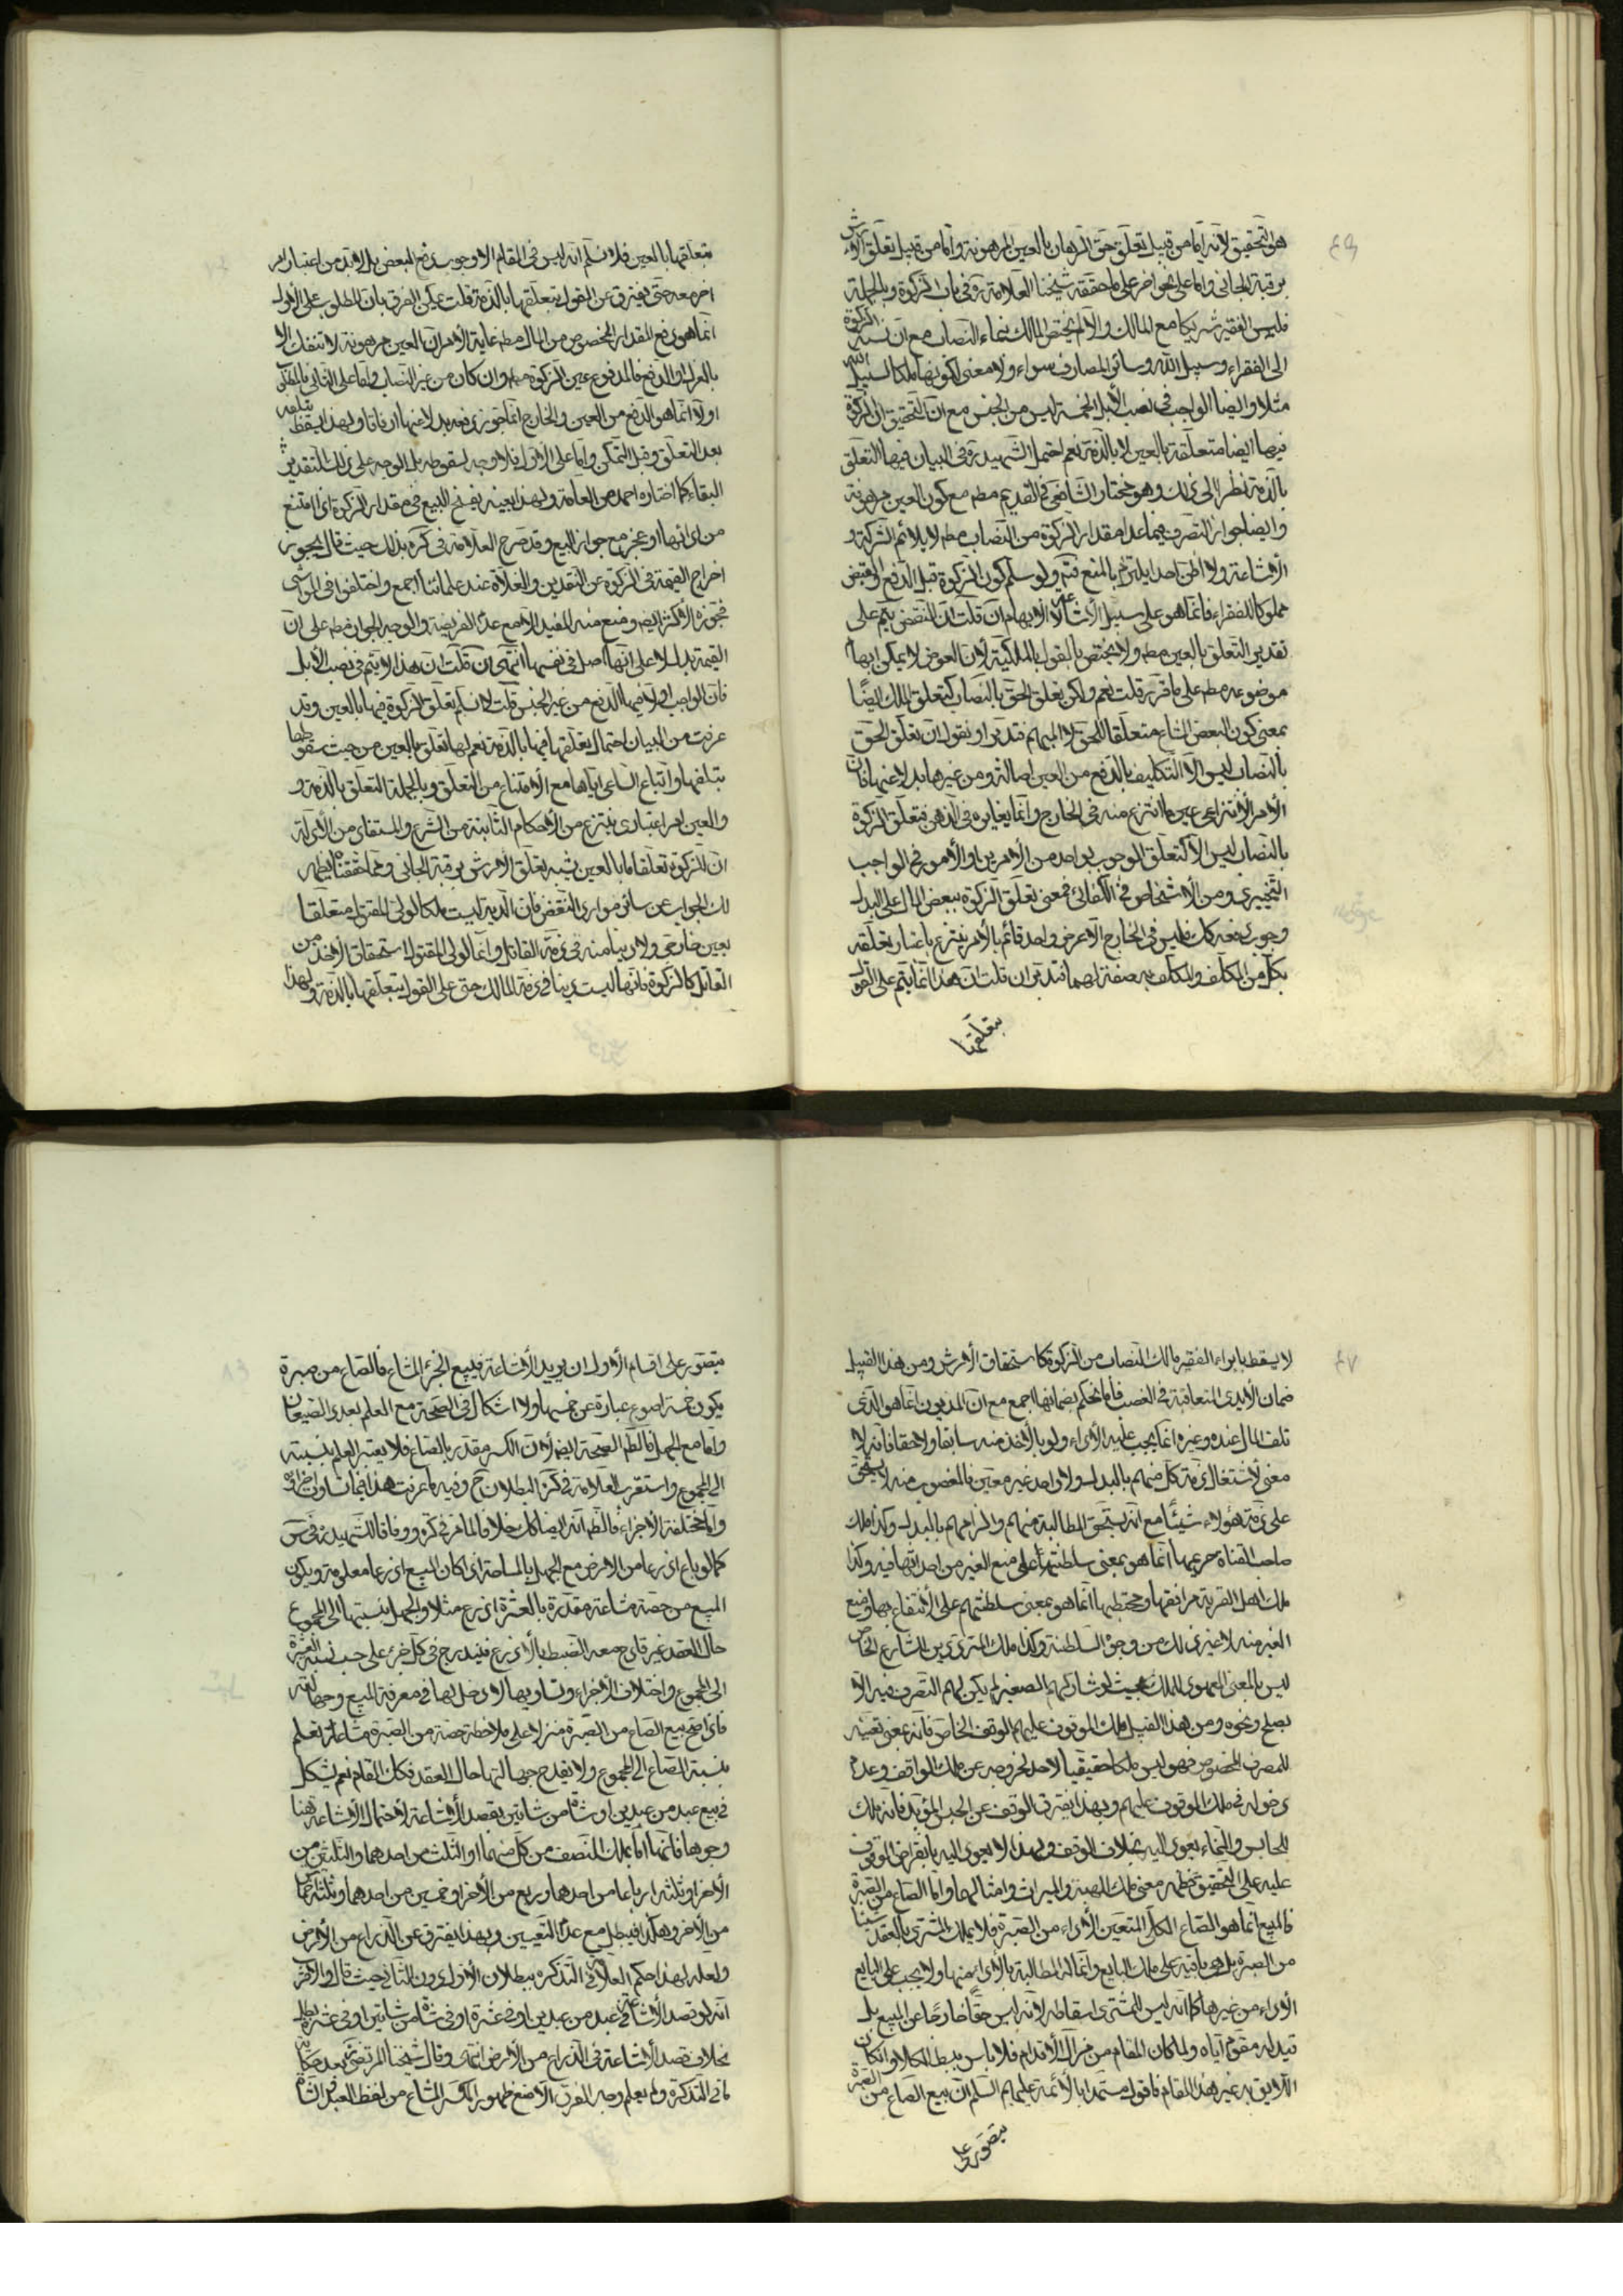 هو التحقيق لانه امّا من قبيل تعلّق حقّ الرهان بالعين المرهونة وامّا من قبيل تعلّق الارش
برقبة الجانى وامّا على نحو اخر على ما حققه شيخنا العلامة ره فى باب الزكوة وبالجملة
فليس الفقير شريكا مع المالك والّا لم يختص المالك بنماء النصاب مع انّ نسبة الزكوة
الى الفقراء وسبيل الله وسائر المصارف سواء ولا معنى لكونها ملكا لسبيل الله
مثلا وايضا الواجب فى نصب الابل الخمسة ليس من الجنس مع انّ التحقيق انّ الزكوة
فيها ايضا متعلقة بالعين لا بالذمة نعم احتمل الشهيد ره فى البيان فيها التعلق
بالذمة نظرا الى ذلك وهو مختار الشافعى فى القديم مطم مع كون العين مرهونة
وايضا جواز التصرف فيما عدا مقدار الزكوة من النصاب مطم لا يلائم الشركة و
الاشاعة ولا اظن احدا يلتزم بالمنع فتم ولو سلم كون الزكوة قبل الدفع او القبض
مملوكا للفقراء فانما هو على سبيل الاشاعة لا الابهام ان قلت انّ النقض يتم على
تقدير التعلق بالعين مطم ولا يختص بالقول بالملكية لانّ العرض لا يمكن ابهام
موضوعه مطم على ما قرر قلت نعم ولكن تعلق الحق بالنصاب كتعلق الملك ايضًا
بمعنى كون البعض المشاع متعلقا للحق لا المبهم فتدبر او نقول ان تعلق الحق
بالنصاب ليس الا التكليف بالدفع من العين اصالة ومن غيرها بدلا عنها فان
الامر الانتزاعى عين ما انتزع منه فى الخارج وانما يغايره فى الذهن فتعلق الزكوة
بالنصاب ليس الا كتعلق الوجوب بواحد من الامرين او الامور فى الواجب
التخييرى ومن الاشخاص فى الكفائى فمعنى تعلق الزكوة ببعض المال على البدل
وجوب دفعه كك فليس فى الخارج الا عرض واحد قائم بالامر ينتزع باعتبار تعلقه
بكل من المكلف والمكلف به صفة لهما فتدبر ان قلت انّ هذا انما يتم على القول
بتعلقها
بتعلقها بالعين فلا نسلم انه ليس فى المقام الا وجوب دفع البعض بل لابد من اعتبار امر
اخر معه حتى يفترق عن القول بتعلقها بالذمة قلت يمكن الفرق بان المطلوب على الاول
انما هو دفع المقدار المخصوص من المال مطم غاية الامر ان العين مرهونة لا تنفك الا
بالعزل او الدفع فالمدفوع عين الزكوة مطم وان كان من غير النصاب واما على الثانى فالمطلوب
اولا انما هو الدفع من العين والخارج انما يجوز دفعه بدلا عنها ارفاقا ولهذا يسقط بتلفه
بعد التعلق وقبل التمكن واما على الاول فلا وجه لسقوطه بل الوجه على ذلك التقدير
البقاء كما اختاره احمد من العامة ولهذا بعينه يفسخ البيع فى مقدار الزكوة اذا امتنع
من ادائها او عجز مع جواز البيع وقد صرح العلامة فى كره بذلك حيث قال يجوز
اخراج القيمة فى الزكوة عن النقدين والغلاة عند علمائنا اجمع واختلفوا فى المواشى
فجوزه الاكثر ايضم ومنع منه المفيد الا مع عدم الفريضة والوجه الجواز مطم على انّ
القيمة بدل لا على انها اصل فى نفسها انتهى ان قلت ان هذا لا يتم فى نصب الابل
فان الواجب اولا فيها الدفع من غير الجنس قلت لا نسلم تعلق الزكوة فيها بالعين وقد
عرفت من البيان احتمال تعلقها فيها بالذمة نعم لها تعلق بالعين من حيث سقوطها
بتلفها واتباع الساعى اياها مع الامتناع من التعلق وبالجملة التعلق بالذمة و
والعين امر اعتبارى ينتزع من الاحكام الثابتة من الشرع والمستفاد من الادلة
ان للزكوة تعلقا ما بالعين يشبه تعلق الارش برقبة الجانى ومما حققنا يظهر
لك الجواب عن سائر موارد النقض فان الدية ليست ملكا لولى المقتول متعلقا
بعين خارجى ولا دينا منه فى ذمة القاتل وانما لولى المقتول استحقاق الاخذ من
القاتل كالزكوة فانها ليست دينا فى ذمة المالك حتى على القول بتعلقها بالذمة ولهذا
٤٧
لا يسقط بابراء الفقير مالك النصاب من الزكوة كاستحقاق الارش ومن هذا القبيل
ضمان الايدى المتعاقبة فى الغصب فانا نحكم بضمانها اجمع مع انّ المديون انما هو الذى
تلف المال عنده وغيره انما يجب عليه الاداء ولو بالاخذ منه سابقا ولاحقا فانه لا
معنى لاشتغال ذمة كل منهم بالبدل ولا واحد غير معين فالمغصوب منه لا يستحق
على ذمة هؤلاء شيئًا مع انه يستحق المطالبة منهم والزامهم بالبدل وكذا ملك
صاحب القناة حريمها انما هو بمعنى سلطنته على منع الغير من احداثها فيه وكذا
ملك اهل القرية مرافقها ومحتطبها انما هو بمعنى سلطنتهم على الانتفاع بها ومنع
الغير منه لا غير ذلك من وجوه السلطنة وكذا ملك المترددين الشارع الخاص
ليس بالمعنى المعهود للملك بحيث لو شاركهم الصغير لم يكن لهم التصرف فيه الا
بصلح ونحوه ومن هذا القبيل ملك الموقوف عليهم الوقف الخاص فانه بمعنى تعينه
للمصرف المخصوص فهو ليس ملكا حقيقيا لاحد لخروجه عن ملك الواقف وعدم
دخوله فى ملك الموقوف عليهم وبهذا يفترق الوقف عن الحبس المؤبد فانه ملك
للحابس والنماء يعود اليه بخلاف الوقف ولهذا لا يعود اليه بانقراض الموقوف
عليه على التحقيق فظهر معنى ملك الهبة والميراث وامثالهما واما الصاع من الصبرة
فالمبيع انما هو الصاع الكلى المتعين الاداء من الصبرة فلا يملك المشترى بالعقد شيئا
من الصبرة بل هى باقية على ملك البايع وانما له المطالبة بالاداء منها ولا يجب على البايع
الاداء من غيرها كما انه ليس للمشترى اسقاطه لانه ليس حقًّا خارجًا عن المبيع بل
قيد له مقوم اياه ولما كان المقام من مزال الاقدام فلا باس ببسط الكلام وان كان
اللايق به غير هذا المقام فاقول مستمدا بالائمة عليهم السلم انّ بيع الصاع من الصبرة
يتصور على
يتصور على اقسام الاول ان يريد الاشاعة فيبيع الجزء المشاع فالصاع من صبرة
يكون خمسة اصوع عبارة عن خمسها ولا اشكال فى الصحة مع العلم بعدد الصيعان
واما مع الجهل فالظم الصحة ايضم لانّ الكسر مقدر بالصاع فلا يعتبر العلم بنسبته
الى المجموع واستقرب العلامة فى كره البطلان ح وفيه ما عرفت هذا فيما تساوت اجزائه
واما مختلفة الاجزاء فالظم انه ايضا كك خلافا لما مر فى كره ووفاقا للشهيد ره فى س
كما لو باع اذرعا من الارض مع الجهل بالمساحة اذ كان المبيع اذرعا معلومة ويكون
المبيع من حصة مشاعة مقدرة بالعشرة اذرع مثلا والجهل بنسبتها الى المجموع
حال العقد غير قادح معه الضبط بالاذرع فيندرج فى كل جزء على حسب نسبة العشرة
الى المجموع واختلاف الاجزاء وتساويها لا دخل لها فى معرفة المبيع وجهالته
فاذا صح بيع الصاع من الصبرة منزلا على ملاحظة حصة من الصبرة مشاعة تعلم
بنسبة الصاع الى المجموع ولا يقدح جهالتها حال العقد فكك المقام نعم يشكل
فى بيع عبد من عبدين او شاة من شاتين بقصد الاشاعة لاحتمال الاشاعة هنا
وجوها فانها اما بملك النصف من كل منهما او الثلث من احدهما والثلثين من
الاخر او ثلثة ارباعا من احدهما وربع من الاخر او خمسين من احدهما وثلثة اخماس
من الاخر وهكذا فيبطل مع عدم التعيين وبهذا يفترق عن الذراع من الارض
ولعله لهذا حكم العلامة فى التذكره ببطلان الاول دون الثانى حيث قال والاكثر
انه لو قصد الاشاعة فى عبد من عبدين او فى عشرة او فى شاة من شاتين او فى عشر بطل
بخلاف قصد الاشاعة فى الذراع من الارض انتهى وقال شيخنا المرتضى بعد حكاية
ما فى التذكرة ولم يعلم وجه الفرق الا منع ظهور الكسر المشاع من لفظ العبد والشاة